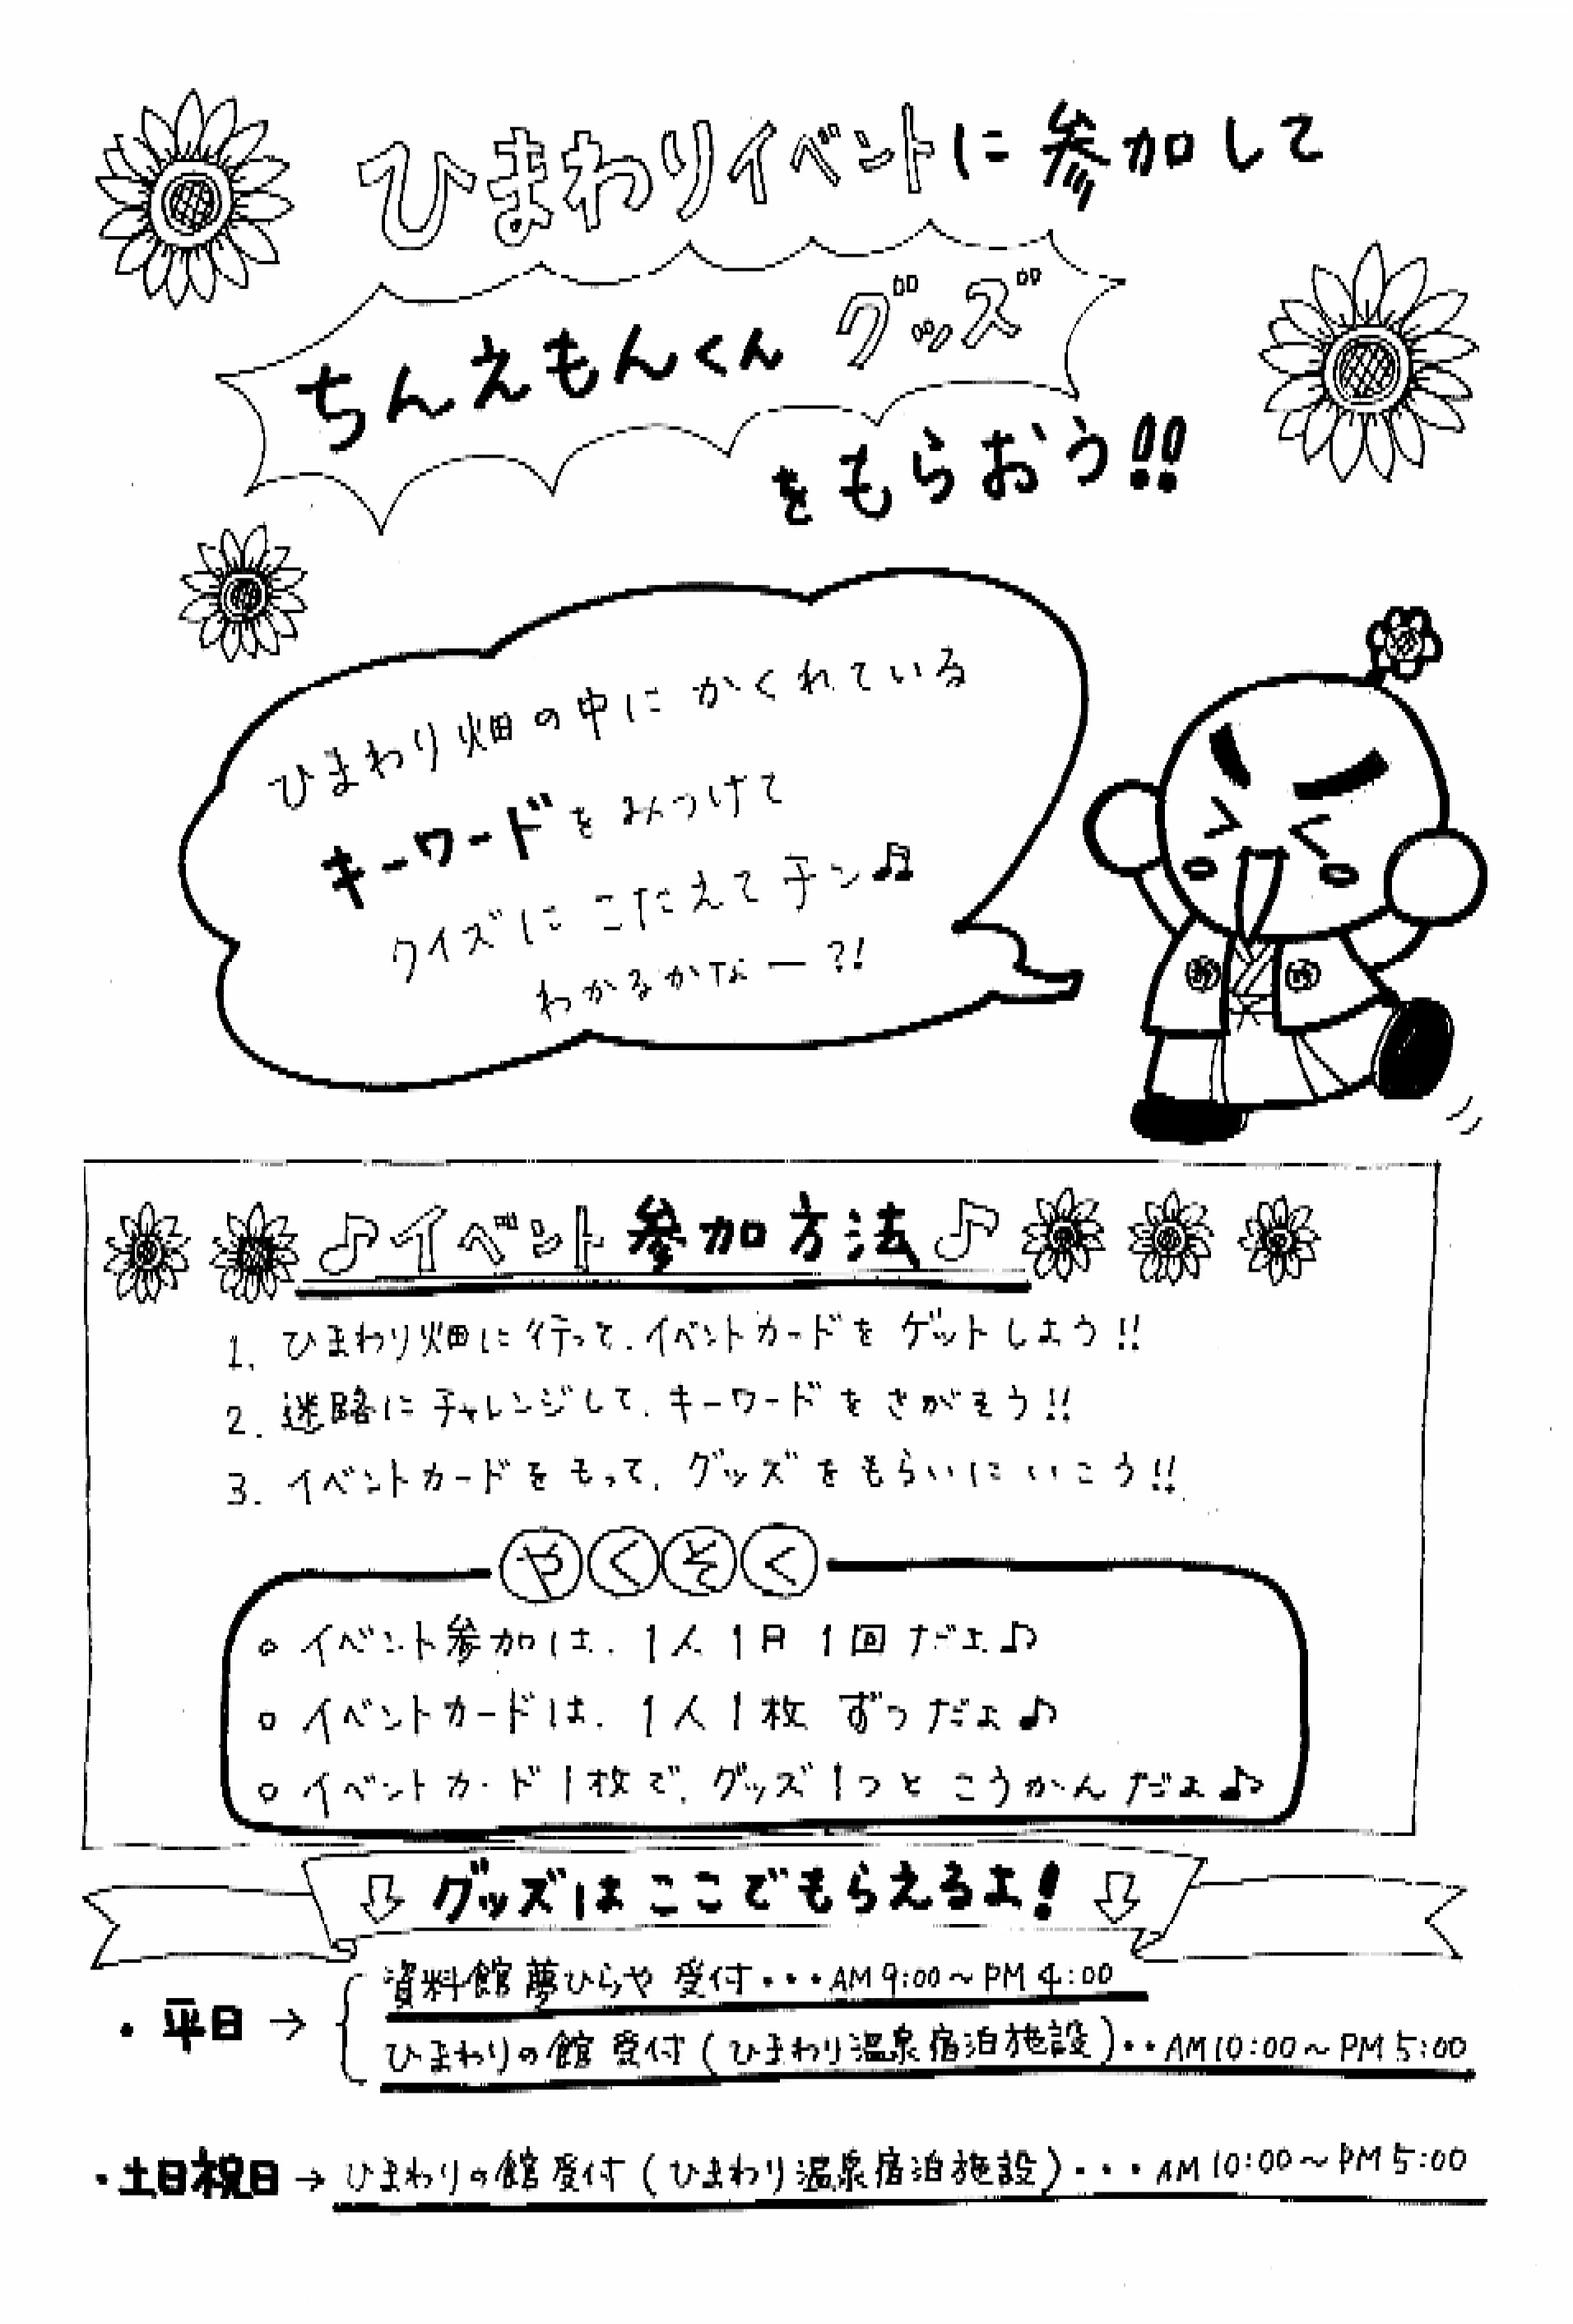 ひまわりイベントに参加して
ちんえもんくん グッズ
をもらおう!!
ひまわり畑の中に かくれている
キーワードをみつけて
クイズに こたえてチン♫
わかるかなー?!
♪イベント参加方法♪
1. ひまわり畑に行って、イベントカードを ゲットしよう!!
2. 迷路にチャレンジして、キーワードをさがそう!!
3. イベントカードをもって、グッズをもらいにいこう!!
やくそく
○ イベント参加は、1人1日1回だよ♪
○ イベントカードは、1人1枚 ずつだよ♪
○ イベントカード1枚で、グッズ1つと こうかんだよ♪
⇩ グッズはここでもらえるよ! ⇩
・平日→
資料館 夢ひらや 受付・・・AM 9:00～PM 4:00
ひまわりの館 受付(ひまわり温泉宿泊施設)・・AM10:00～PM5:00
・土日祝日→ひまわりの館受付(ひまわり温泉宿泊施設)・・・AM10:00～PM5:00